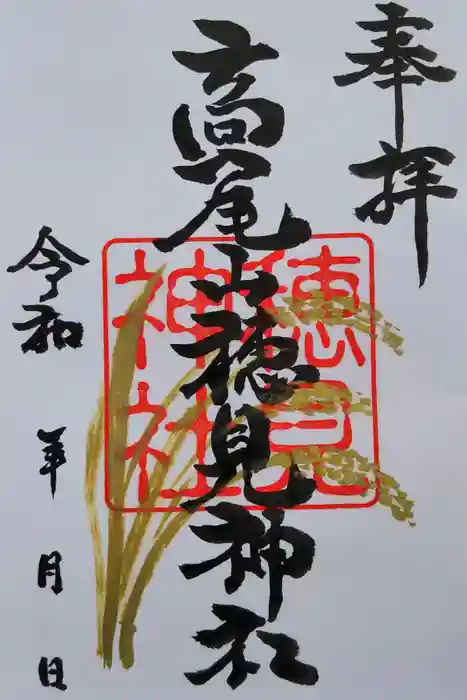 奉拝
高尾山穂見神社
穂見
神社
令和
年
月
日